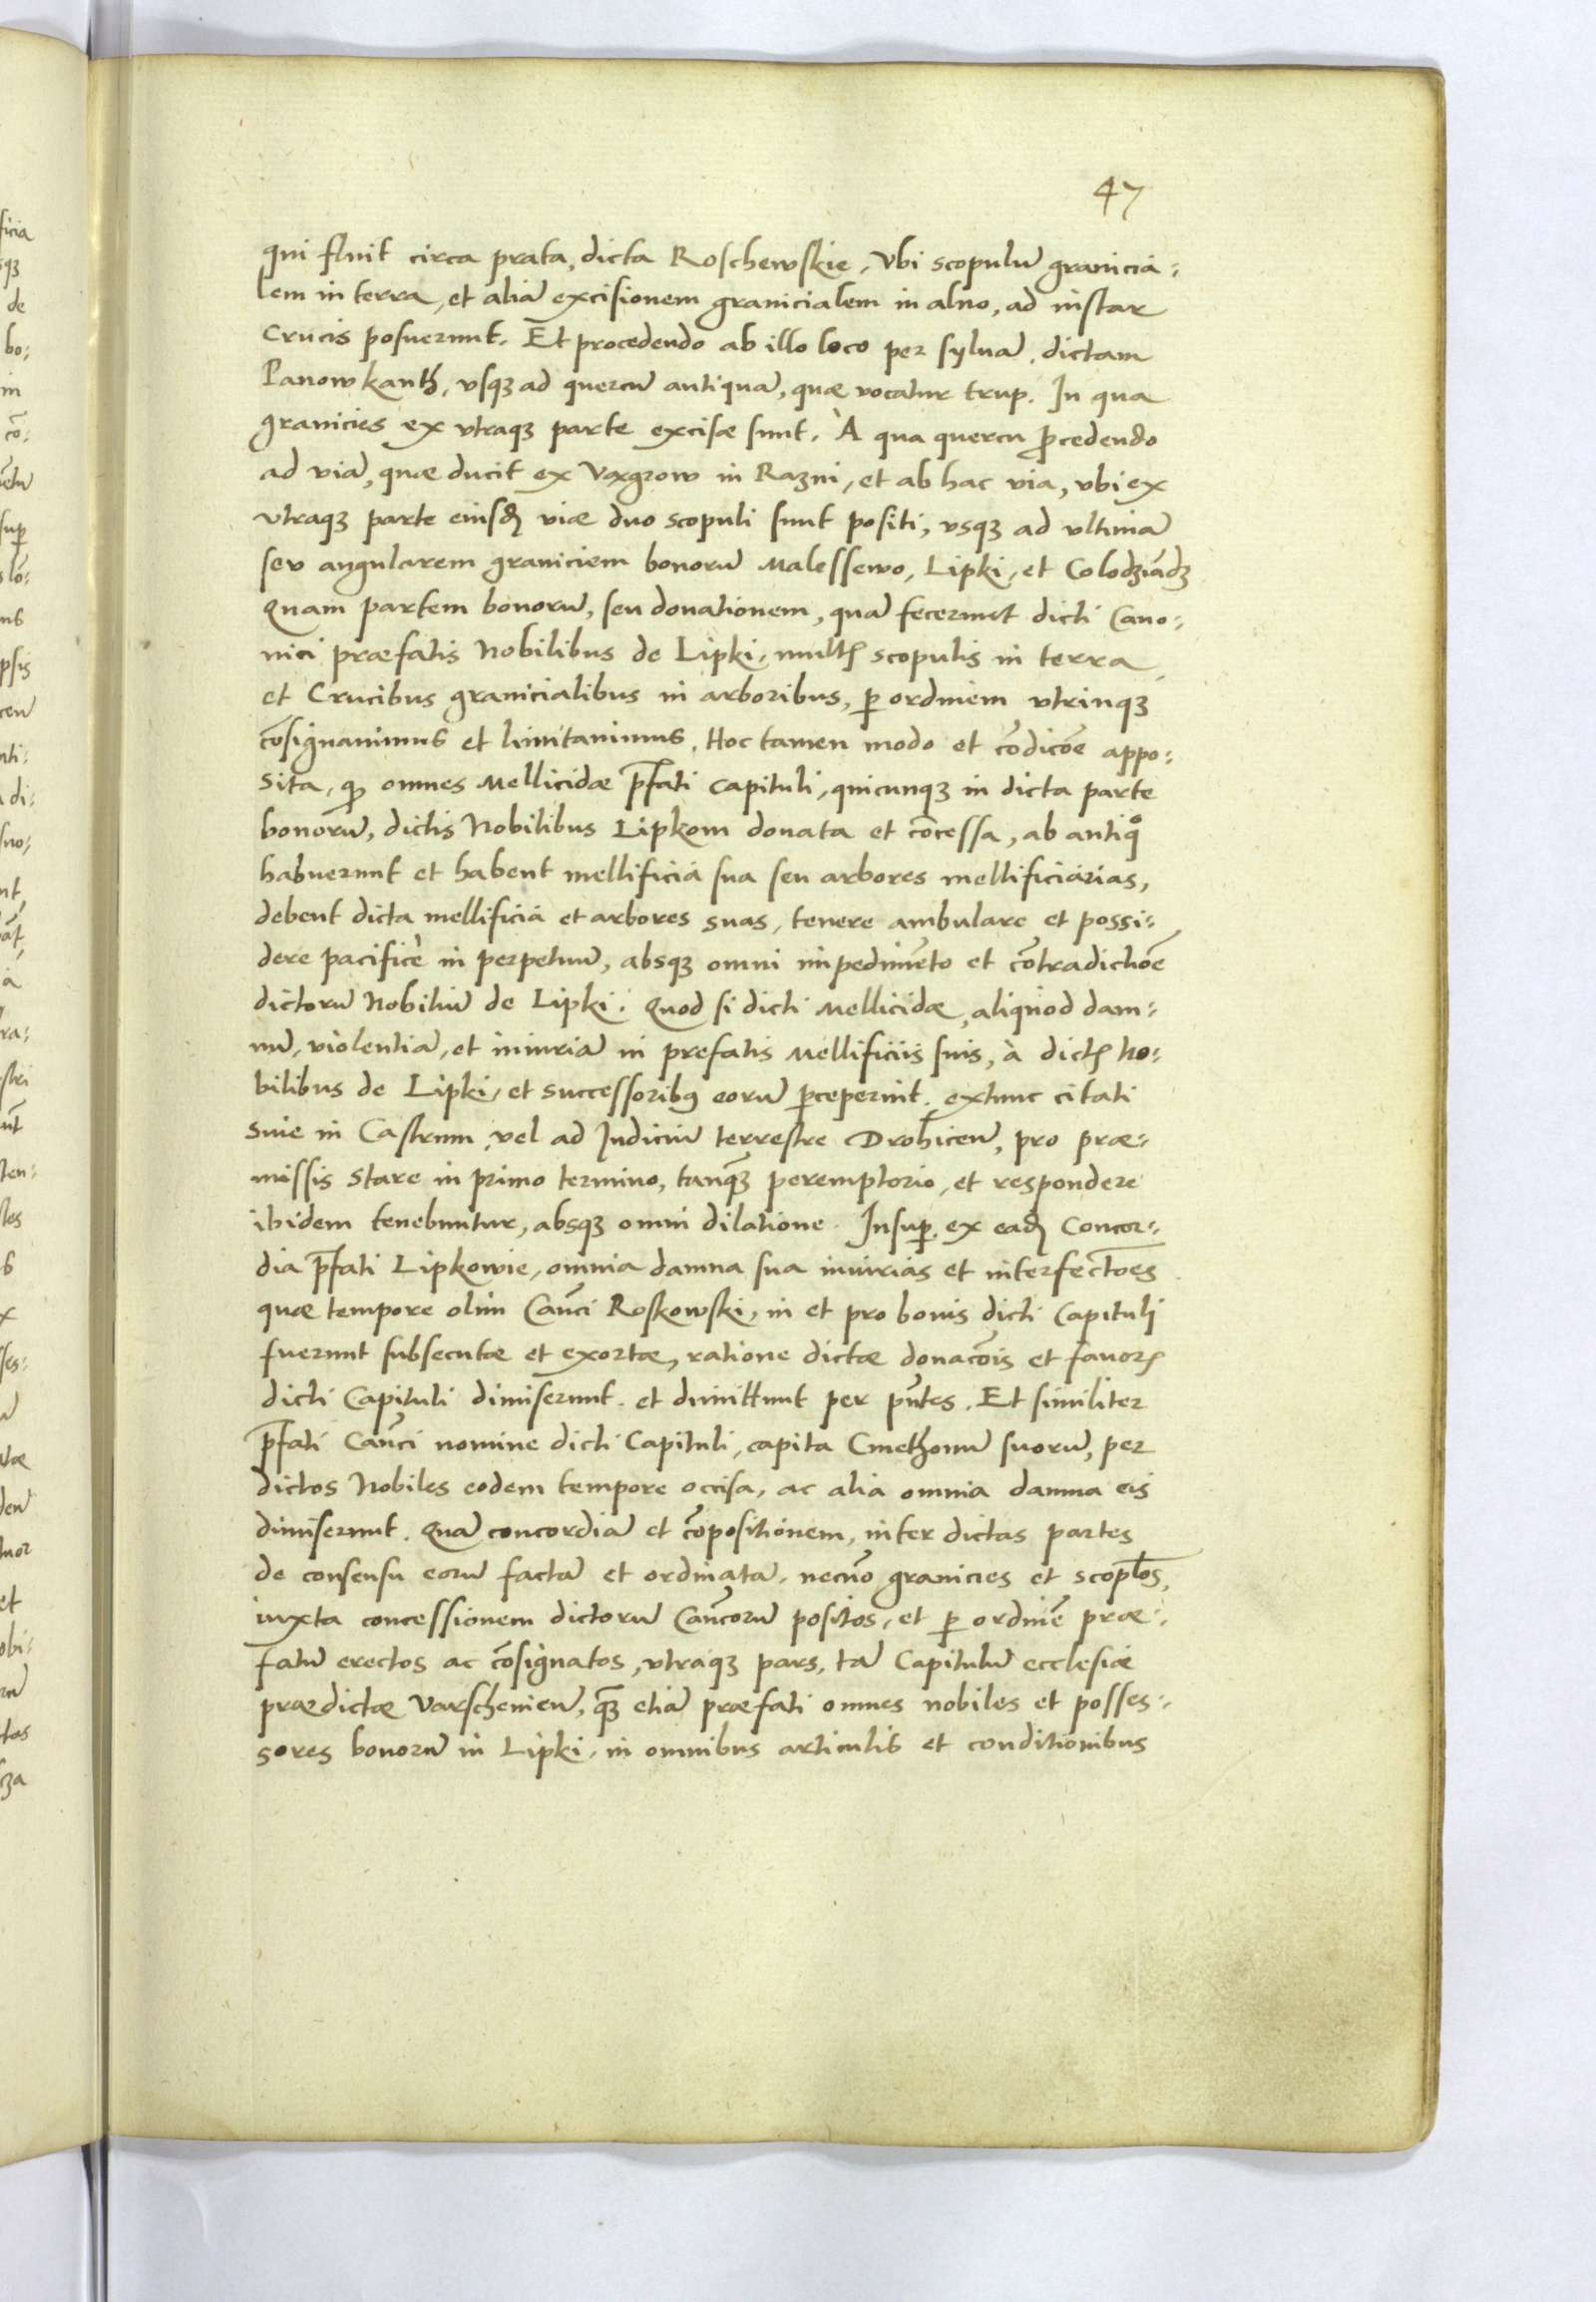 47
qui fluit circa prata, dicta Roschewskie, Vbi scopulū granicia-
lem in terra, et aliā excisionem granicialem in alno, ad instar
Crucis posuerunt. Et procedendo ab illo loco per syluā, dictam
Panowkanth, vsqꝫ ad quercū antiquā, quæ vocatur trup. In qua
granicies ex vtraqꝫ parte excisæ sunt. À qua quercu ꝓcedendo
ad viā, quæ ducit ex Vąxgrow in Razni, et ab hac via, vbi ex
vtraqꝫ parte eiusdꝫ viæ duo scopuli sunt positi, vsqꝫ ad vltimā
seu angularem graniciem bonorū Malessewo, Lipki, et Colodziądz
Quam partem bonorū, seu donationem, quā fecerunt dicti Cano-
nici præfatis Nobilibus de Lipki, multꝭ scopulis in terra,
et Crucibus granicialibus in arboribus, ꝑ ordinem vtrinqꝫ
cōsignauimus et limitauimus, Hoc tamen modo et cōdicōe appo-
sita, ꝙ omnes Mellicidæ p̄fati Capituli, quicunqꝫ in dicta parte
bonorū, dictis Nobilibus Lipkom donata et cōcessa, ab antiqͦ
habuerunt et habent mellificia sua seu arbores mellificiarias,
debent dicta mellificia et arbores suas, tenere ambulare et possi-
dere pacificè in perpetuū, absqꝫ omni impedimēto et cōtradictiōe
dictorū Nobiliū de Lipki. Quod si dicti Mellicidæ, aliquod dam-
nū, violentiā, et iniuriā in prefatis Mellificiis suis, à dictꝭ No-
bilibus de Lipki, et successoribꝰ eorū ꝑceperint. extunc citati
siue in Castrum, vel ad Iudiciū terrestre Drohicen̄, pro præ-
missis stare in primo termino, tanqꝫ peremptorio, et respondere
ibidem tenebuntur, absqꝫ omni dilatione. Insuꝑ ex eadꝫ Concor-
dia p̄fati Lipkowie, omnia damna sua iniurias et interfectōes
quæ tempore olim Can̄ci Roskowski, in et pro bonis dicti Capituli
fuerunt subsecutæ et exortæ, ratione dictæ donacōis et fauorꝭ
dicti Capituli dimiserunt. et dimittunt per pn̄tes. Et similiter
p̄fati Can̄ci nomine dicti Capituli, capita Cmethonū suorū, per
dictos Nobiles eodem tempore occisa, ac alia omnia damna eis
dimiserunt. Quā concordiā et cōpositionem, inter dictas partes
de consensu eorū factā et ordinatā, necnō granicies et scoplos,
iuxta concessionem dictorū Can̄corū positos, et ꝑ ordinē præ-
fatū erectos ac cōsignatos, vtraqꝫ pars, tā Capitulū ecclesiæ
prædictæ Varschenien̄, qꝫ etiā præfati omnes nobiles et posses-
sores bonorū in Lipki, in omnibus articulis et conditionibus